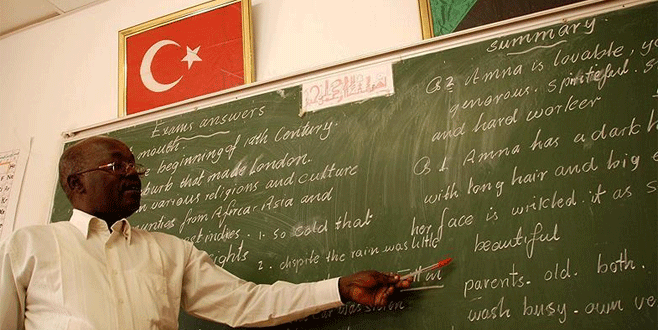 Exams answers
mouth.
beginning of 19th Century.
burb that made London.
n various religions and culture
unities from Africa. Asia and
ast indies.
ghts
1. so cold that
2. dispite the rain was little
summary
Q2 Amna is lovable, yo
generous. Spriteful. s
and hard worker
Q1 Amna has a dark h
with long hair and big e
her face is writcled. it as s
beautiful
parents. old. both.
wash busy. own ve